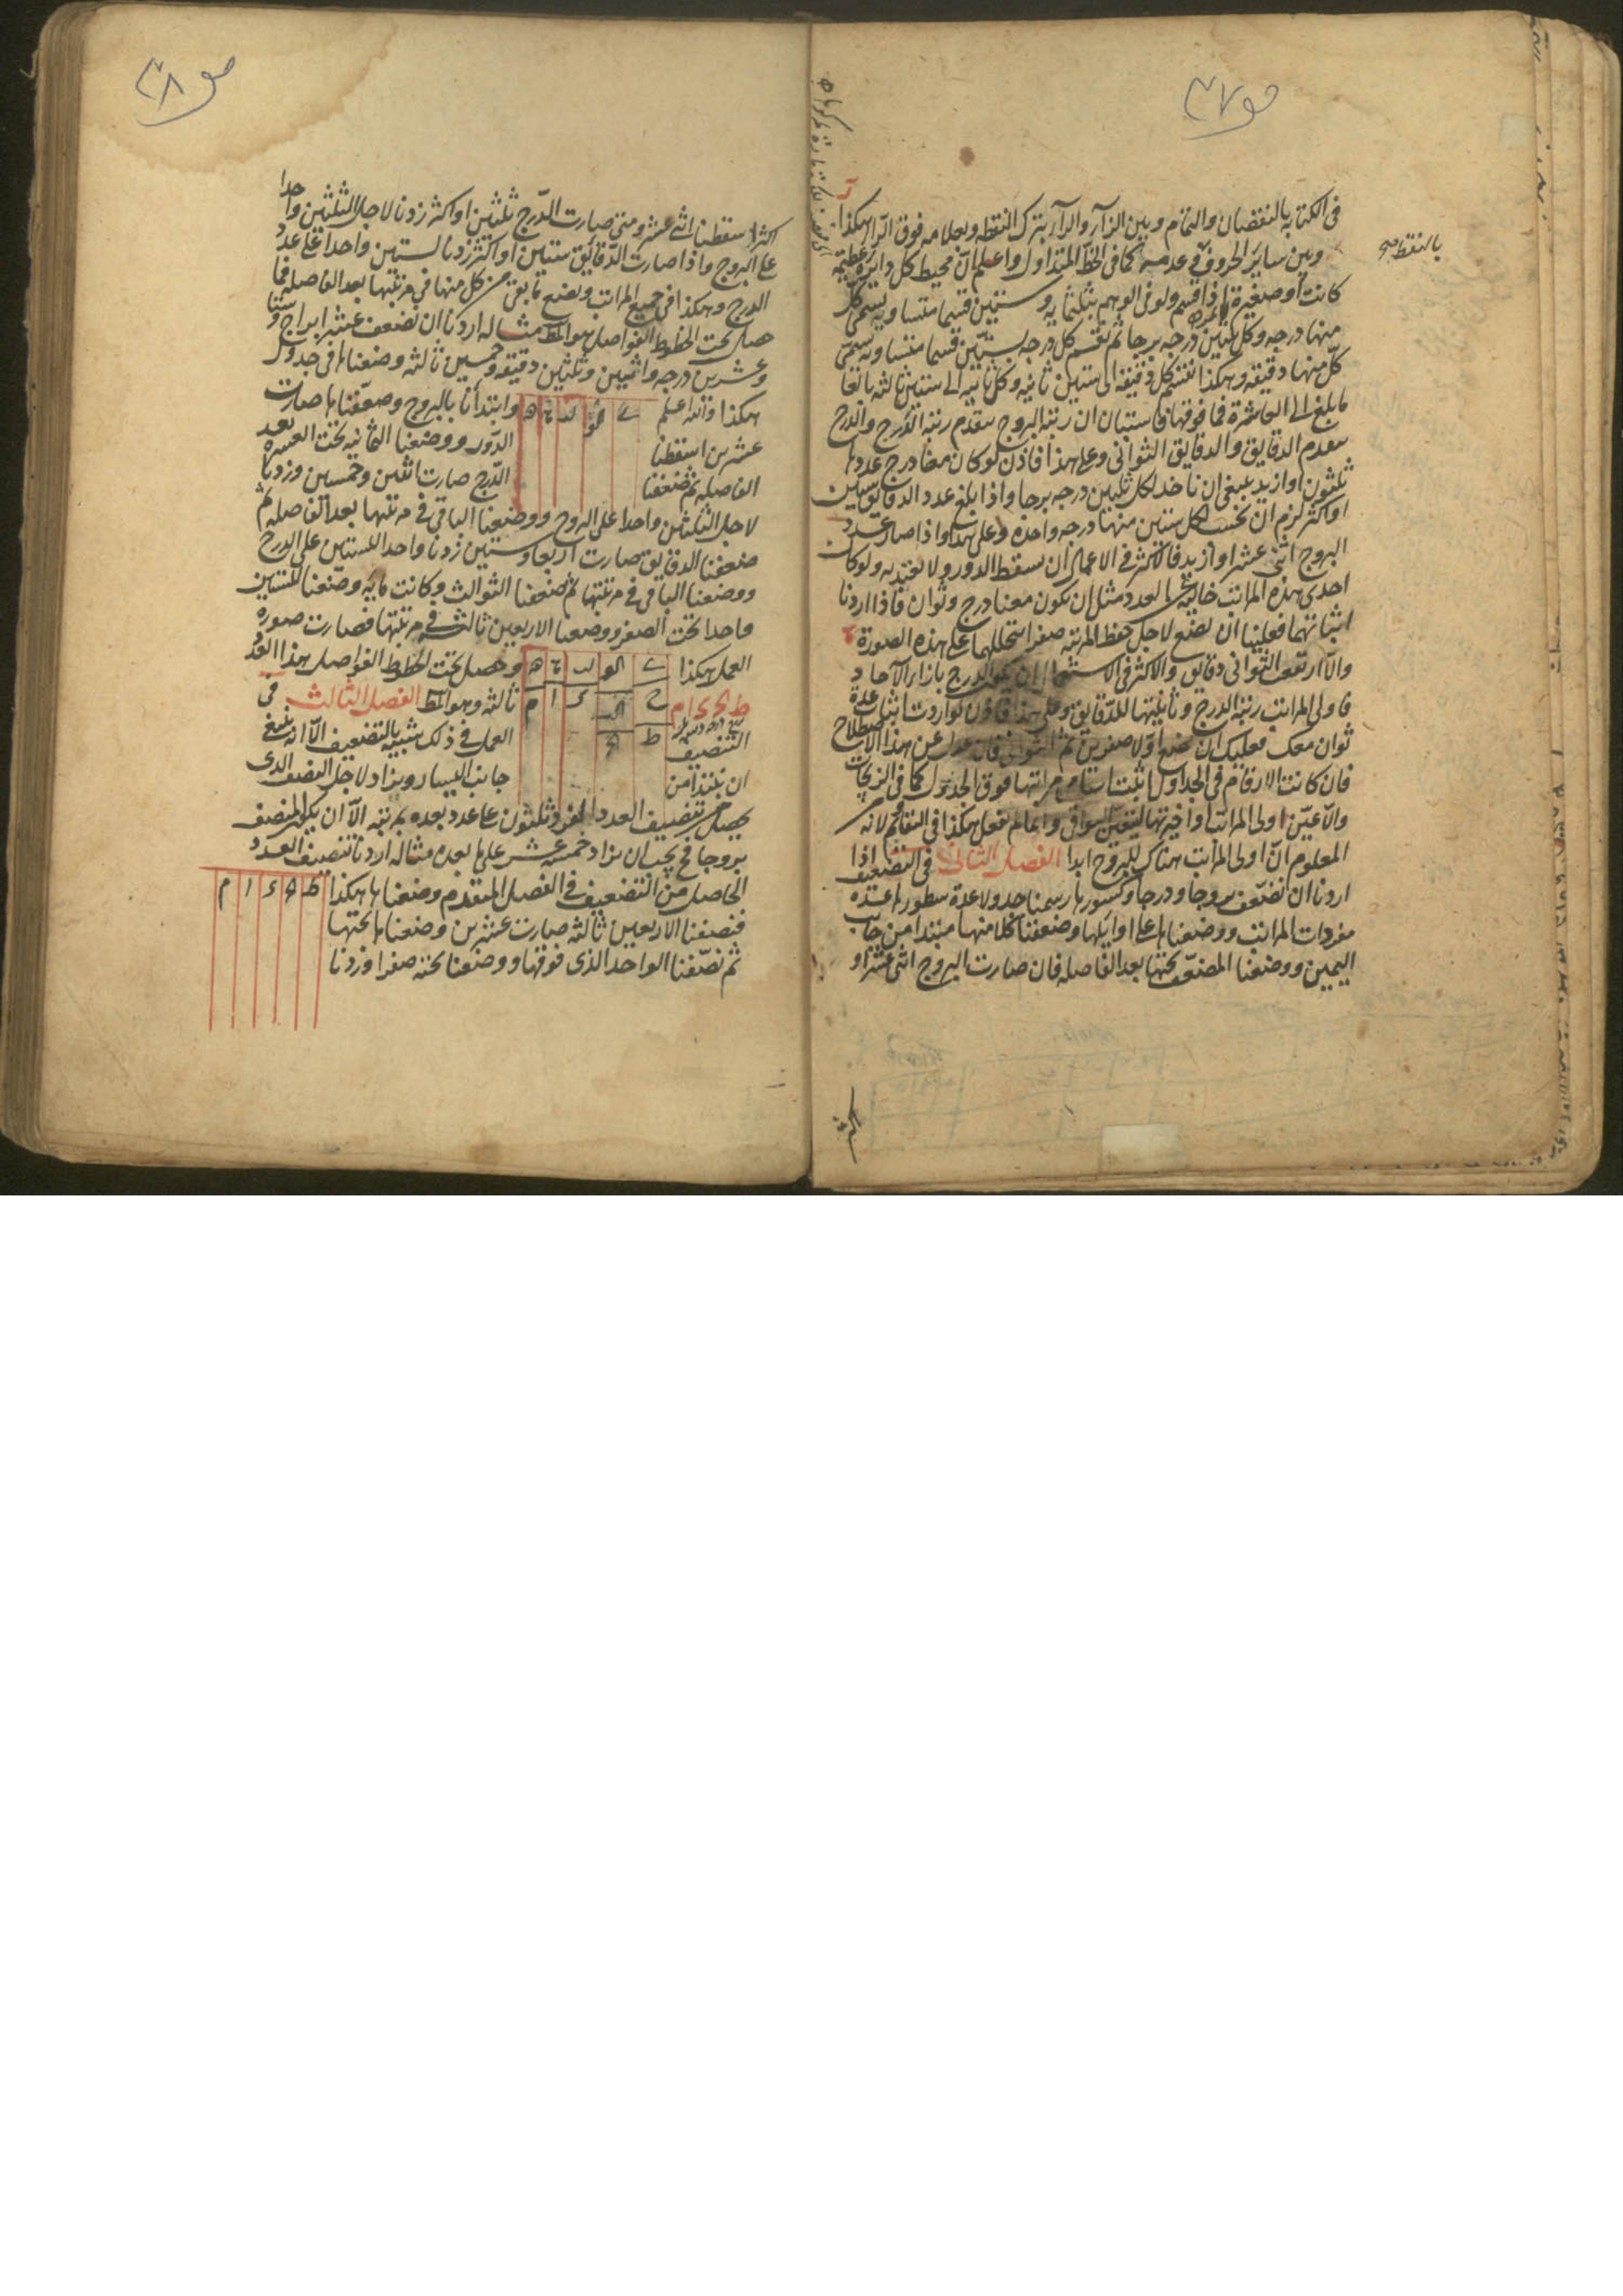 ص ٣٧
فى الكتابه بالنقصان والتمام وبين الزآء والرآء بترك النقطه وبعلامه فوق الرآء هكذا
وبين ساير الحروف وعدمه كما فى الخط المتداول واعلم ان محيط كل دايرة عظيمه
بالنقطه صح
كانت او صغيرة اذا قسم ولو فى الوهم بثلثمايه وستين قسما متساويه يسمى كل
منها درجه وكل ثلثين درجه برجا ثم تقسم كل درجه بستين قسما متساويه يسمى
كل منها دقيقه وهكذا تقسم كل دقيقه الى ستين ثانيه وكل ثانيه الى ستين ثالثه بالغا
ما بلغ الى العاشرة فما فوقها فاستبان ان رتبة البروج متقدم رتبة الدرج والدرج
متقدم الدقايق والدقايق الثوانى وعلى هذا فاذن لو كان معنا درج عددها
ثلثون او ازيد ينبغى ان ناخذ لكل ثلثين درجه برجا واذا بلغ عدد الدقايق ستين
او اكثر لزم ان نحسب لكل ستين منها درجه واحدة وعلى هذا واذا صار عدد
البروج اثنى عشر او ازيد فالاكثر فى الاعمال ان يسقط الدور ولا يعتد به ولو كان
احدى هذه المراتب خاليه عن العدد مثل ان يكون معنا درج وثوان فاذا اردنا
اثباتهما فعلينا ان نضع لاجل حفظ المرتبه صفرا يتخللهما على هذه الصورة
والا ارتفع الثوانى دقايق والاكثر فى الاستعمال ان يكون الدرج بازاء الآحاد
فاولى المراتب رتبة الدرج وثانيتها للدقايق وعلى هذا فاذن لو اردت اثبات عدة
ثوان معك فعليك ان تضع اولا صفرين ثم الثوانى فان عدل عن هذا الاصطلاح
فان كانت الارقام فى الجداول اثبت اسامى مراتبها فوق الجدول كما فى الزيجات
والا عين اولى المراتب او اخيرتها ليتعين البواقى وانما لم نفعل هكذا فى التقاويم لانه
المعلوم ان اولى المراتب هناك للبروج ابدا الفصل الثانى فى التضعيف اذا
اردنا ان نضعف بروجا ودرجا وكسورها رسمنا جدولا عدة سطورها عدة
مفردات المراتب ووضعناها على اوايلها وضعفنا كلا منها مبتدا من جانب
اليمين ووضعنا المضعف تحتها بعد الفاصله فان صارت البروج اثنى عشر او
ص ٣٨
اكثر اسقطنا اثنى عشر ومتى صارت الدرج ثلثين او اكثر زدنا لاجل الثلثين واحدا
على البروج واذا صارت الدقايق ستين او اكثر زدنا لستين واحدا على عدد
الدرج وهكذا فى جميع المراتب ونضع ما بقى من كل منها فى مرتبتها بعد الفاصله فما
حصل تحت الخطوط الفواصل هو المط مثاله اردنا ان نضعف عشر ابراج وستا
وعشرين درجه واثنيين وثلثين دقيقه وخمسين ثالثه وضعناها فى جدول
هكذا والله اعلم
وابتدأنا بالبروج وضعفناها صارت
عشرين اسقطنا
الدور ووضعنا الثمانيه تحت العشره بعد
الفاصله ثم ضعفنا
الدرج صارت اثنين وخمسين وزدنا
لاجل الثلثين واحدا على البروج ووضعنا الباقى فى مرتبتها بعد الفاصله ثم
ضعفنا الدقايق صارت اربعا وستين زدنا واحدا للستين على الدرج
ووضعنا الباقى فى مرتبتها ثم ضعفنا الثوالث وكانت مايه وضعنا للستين
واحدا تحت الصفر ووضعنا الاربعين ثالثه فى مرتبتها فصارت صورة
العمل هكذا
وحصل تحت الخطوط الفواصل هذا العدد
ثالثه وهو المط الفصل الثالث فى
التنصيف
العمل فى ذلك شبيه بالتضعيف الا انه ينبغى
ان نبتدا من
جانب اليسار ويزاد لاجل النصف الذى
يحصل بتنصيف العدد الفرد ثلثون على عدد بعده بمرتبه الا ان يكون المنصف
بروجا فح يجب ان يزاد خمسة عشر على ما بعده مثاله اردنا تنصيف العدد
الحاصل من التضعيف فى الفصل المتقدم وضعناها هكذا
فنصفنا الاربعين ثالثه صارت عشرين وضعناها تحتها
ثم نصفنا الواحد الذى فوقها ووضعنا تحته صفرا وزدنا